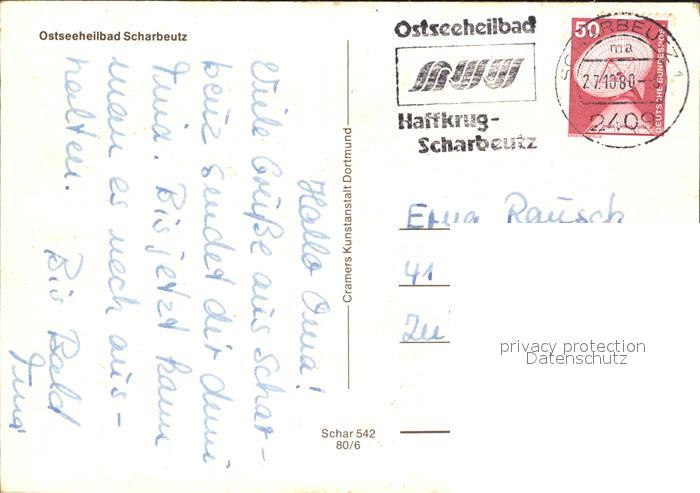 Ostseeheilbad Scharbeutz
Hallo Oma!
Viele Grüße aus Schar-
beuz sendet dir deine
Tina. Bis jetzt kann
man es noch aus-
halten.
Bis Bald
Tina
Cramers Kunstanstalt Dortmund
Schar 542
80/6
Ostseeheilbad
Haffkrug-
Scharbeutz
50
DEUTSCHE BUNDESPOST
SCHARBEUTZ 1
ma
27.10.80
2409
Erna Rausch
41
privacy protection
Datenschutz